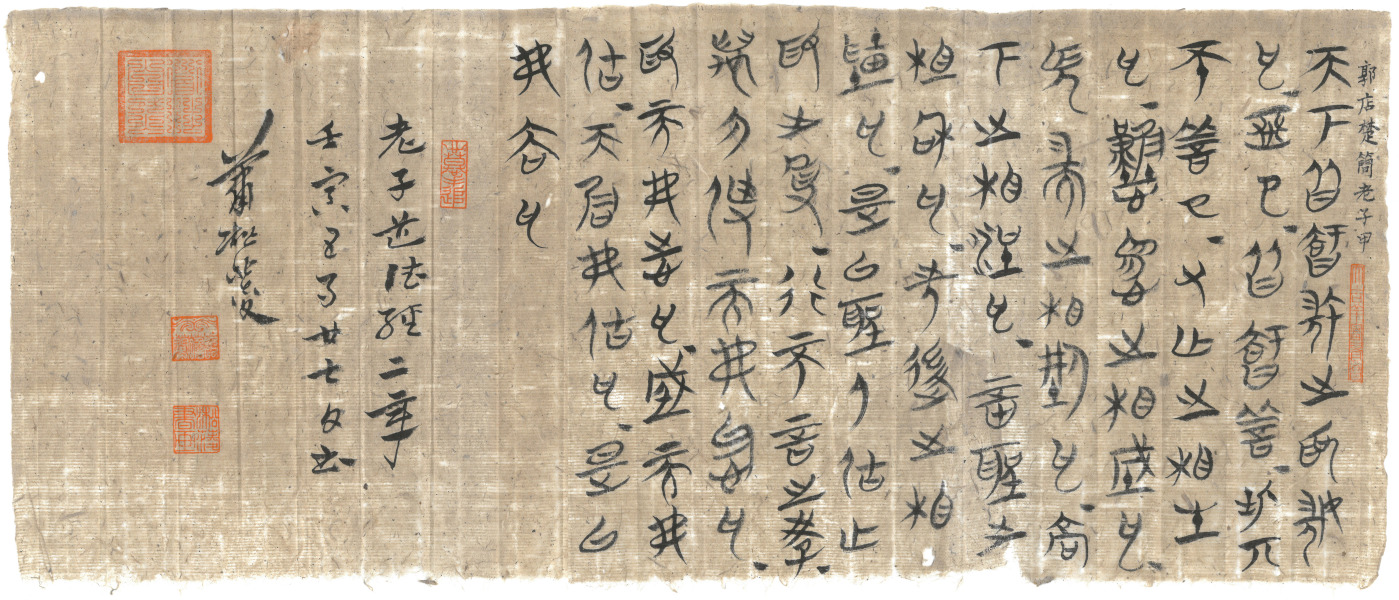 郭店楚簡老子甲
天下皆智美之為美
也亞已皆智善此其
不善已又亡之相生
也難易之相成也
長短之相型也高
下之相浧也音聖之
相和也先後之相
墮也是以聖人居亡
為之事行不言之教
萬勿作而弗始也
為而弗志也成而弗
居天唯弗居也是以
弗去也
老子道德經二章
壬寅五月廿七日書